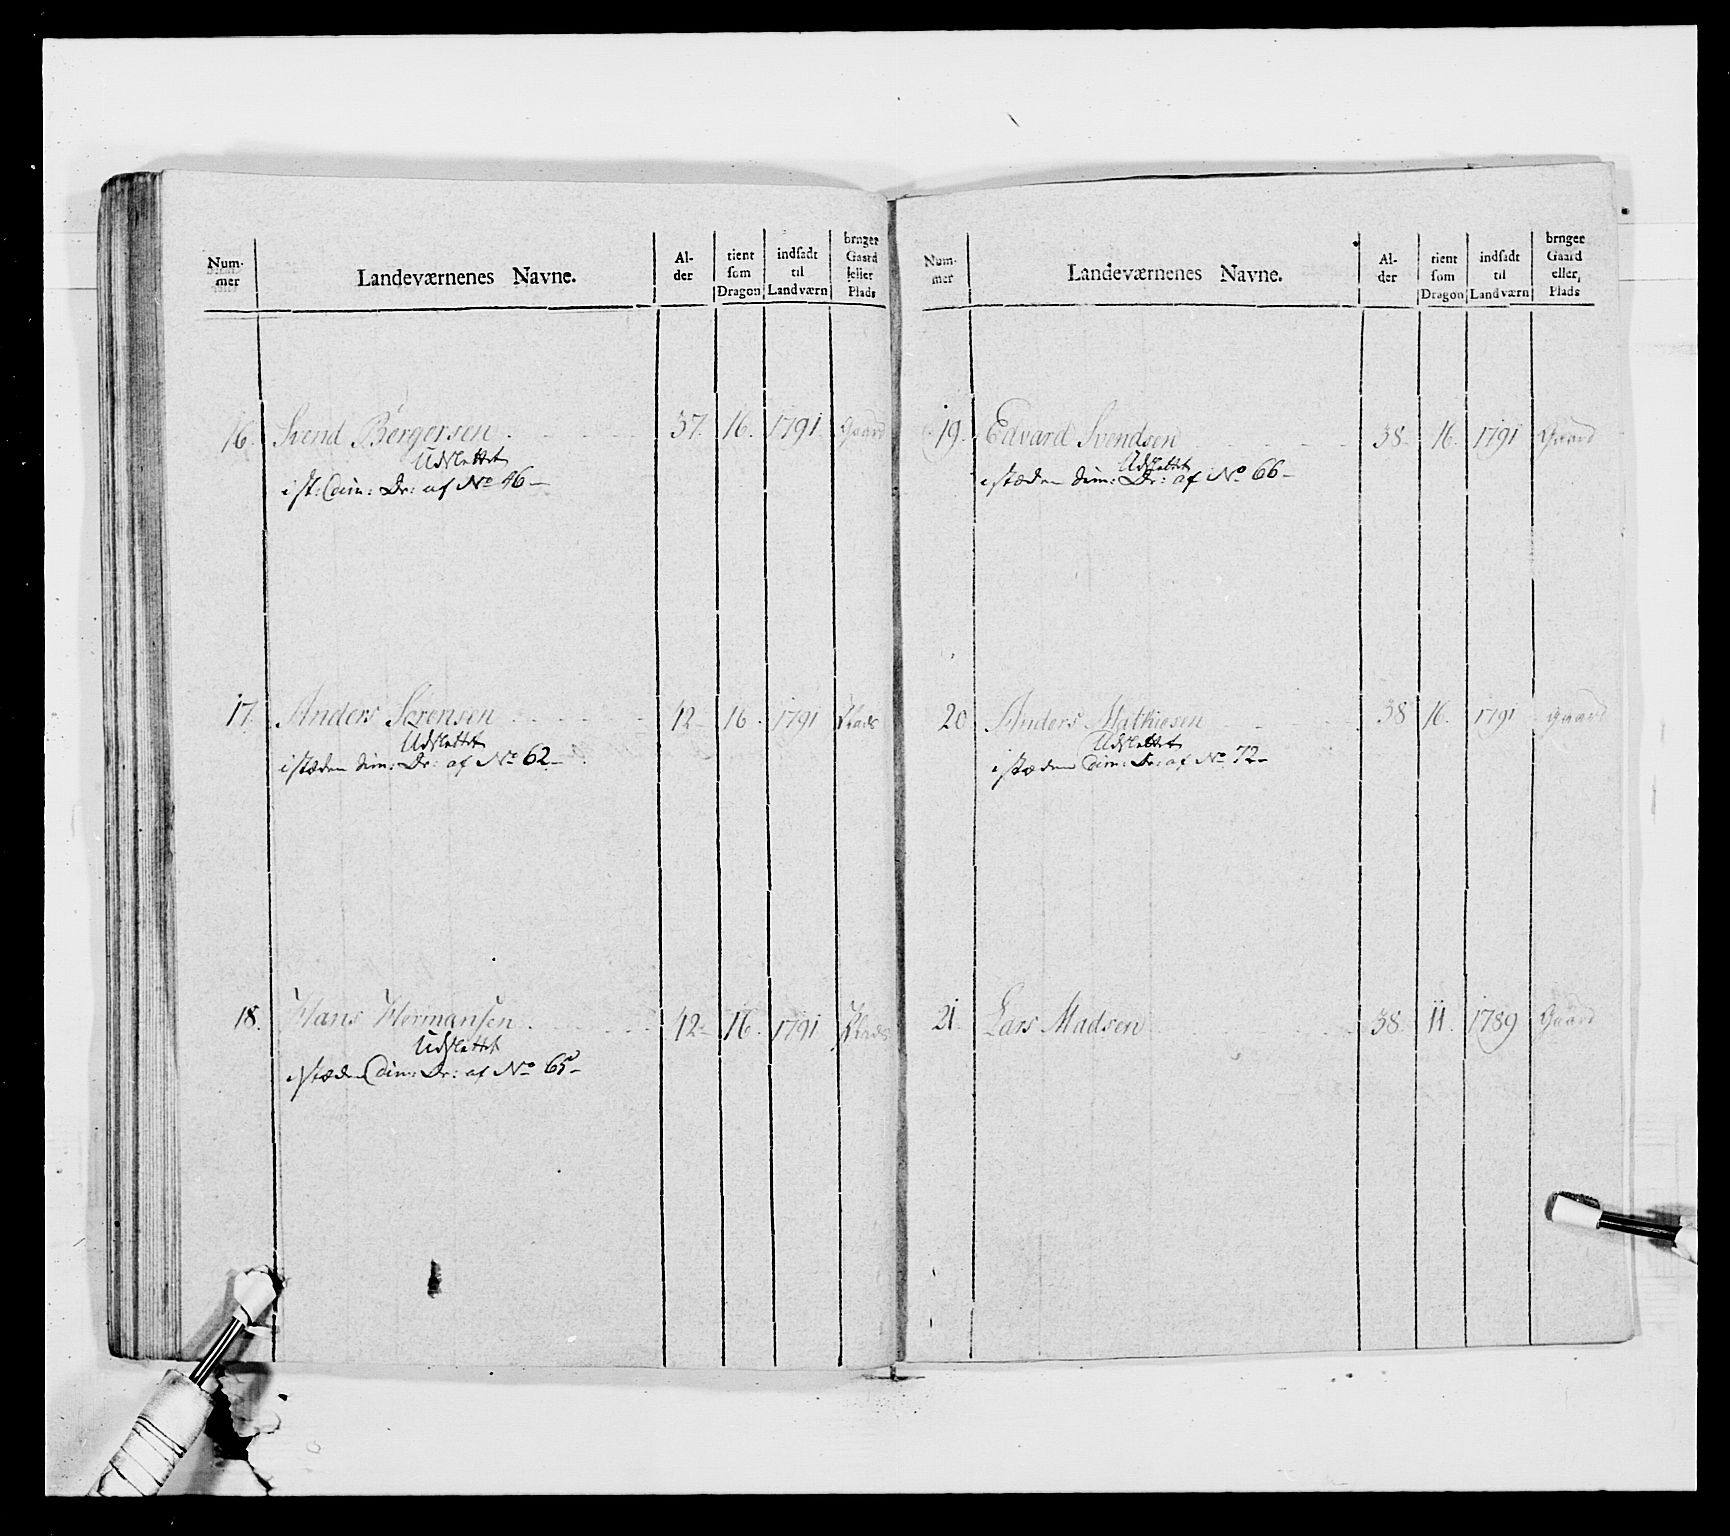 Num-
mer
Landeværnenes Navne.
Al-
der
tient
som
Dragon
indsadt
til
Landværn
bruger
Gaard
eller
Plads
16. Svend Bergersen 37. 16. 1791 Gaard
Udslettet
i st: dim: Dr: af No 46
17. Anders Sørensen 42 16. 1791 Plads
Udslettet
i stæden dim: Dr: af No 62
18. Hans Hermansen 42 16. 1791 Plads
Udslettet
i stæden dim: Dr: af No 65
Num-
mer
Landeværnenes Navne.
Al-
der
tient
som
Dragon
indsadt
til
Landværn
bruger
Gaard
eller,
Plads
19. Edvard Svendsen 38. 16. 1791 Gaard
Udslettet
i stæden dim: Dr: af No 66
20 Anders Mathiesen 38 16. 1791 gaard
Udslettet
i stæden dim: Dr: af No 72
21. Lars Madsen 38. 11. 1789 Gaard